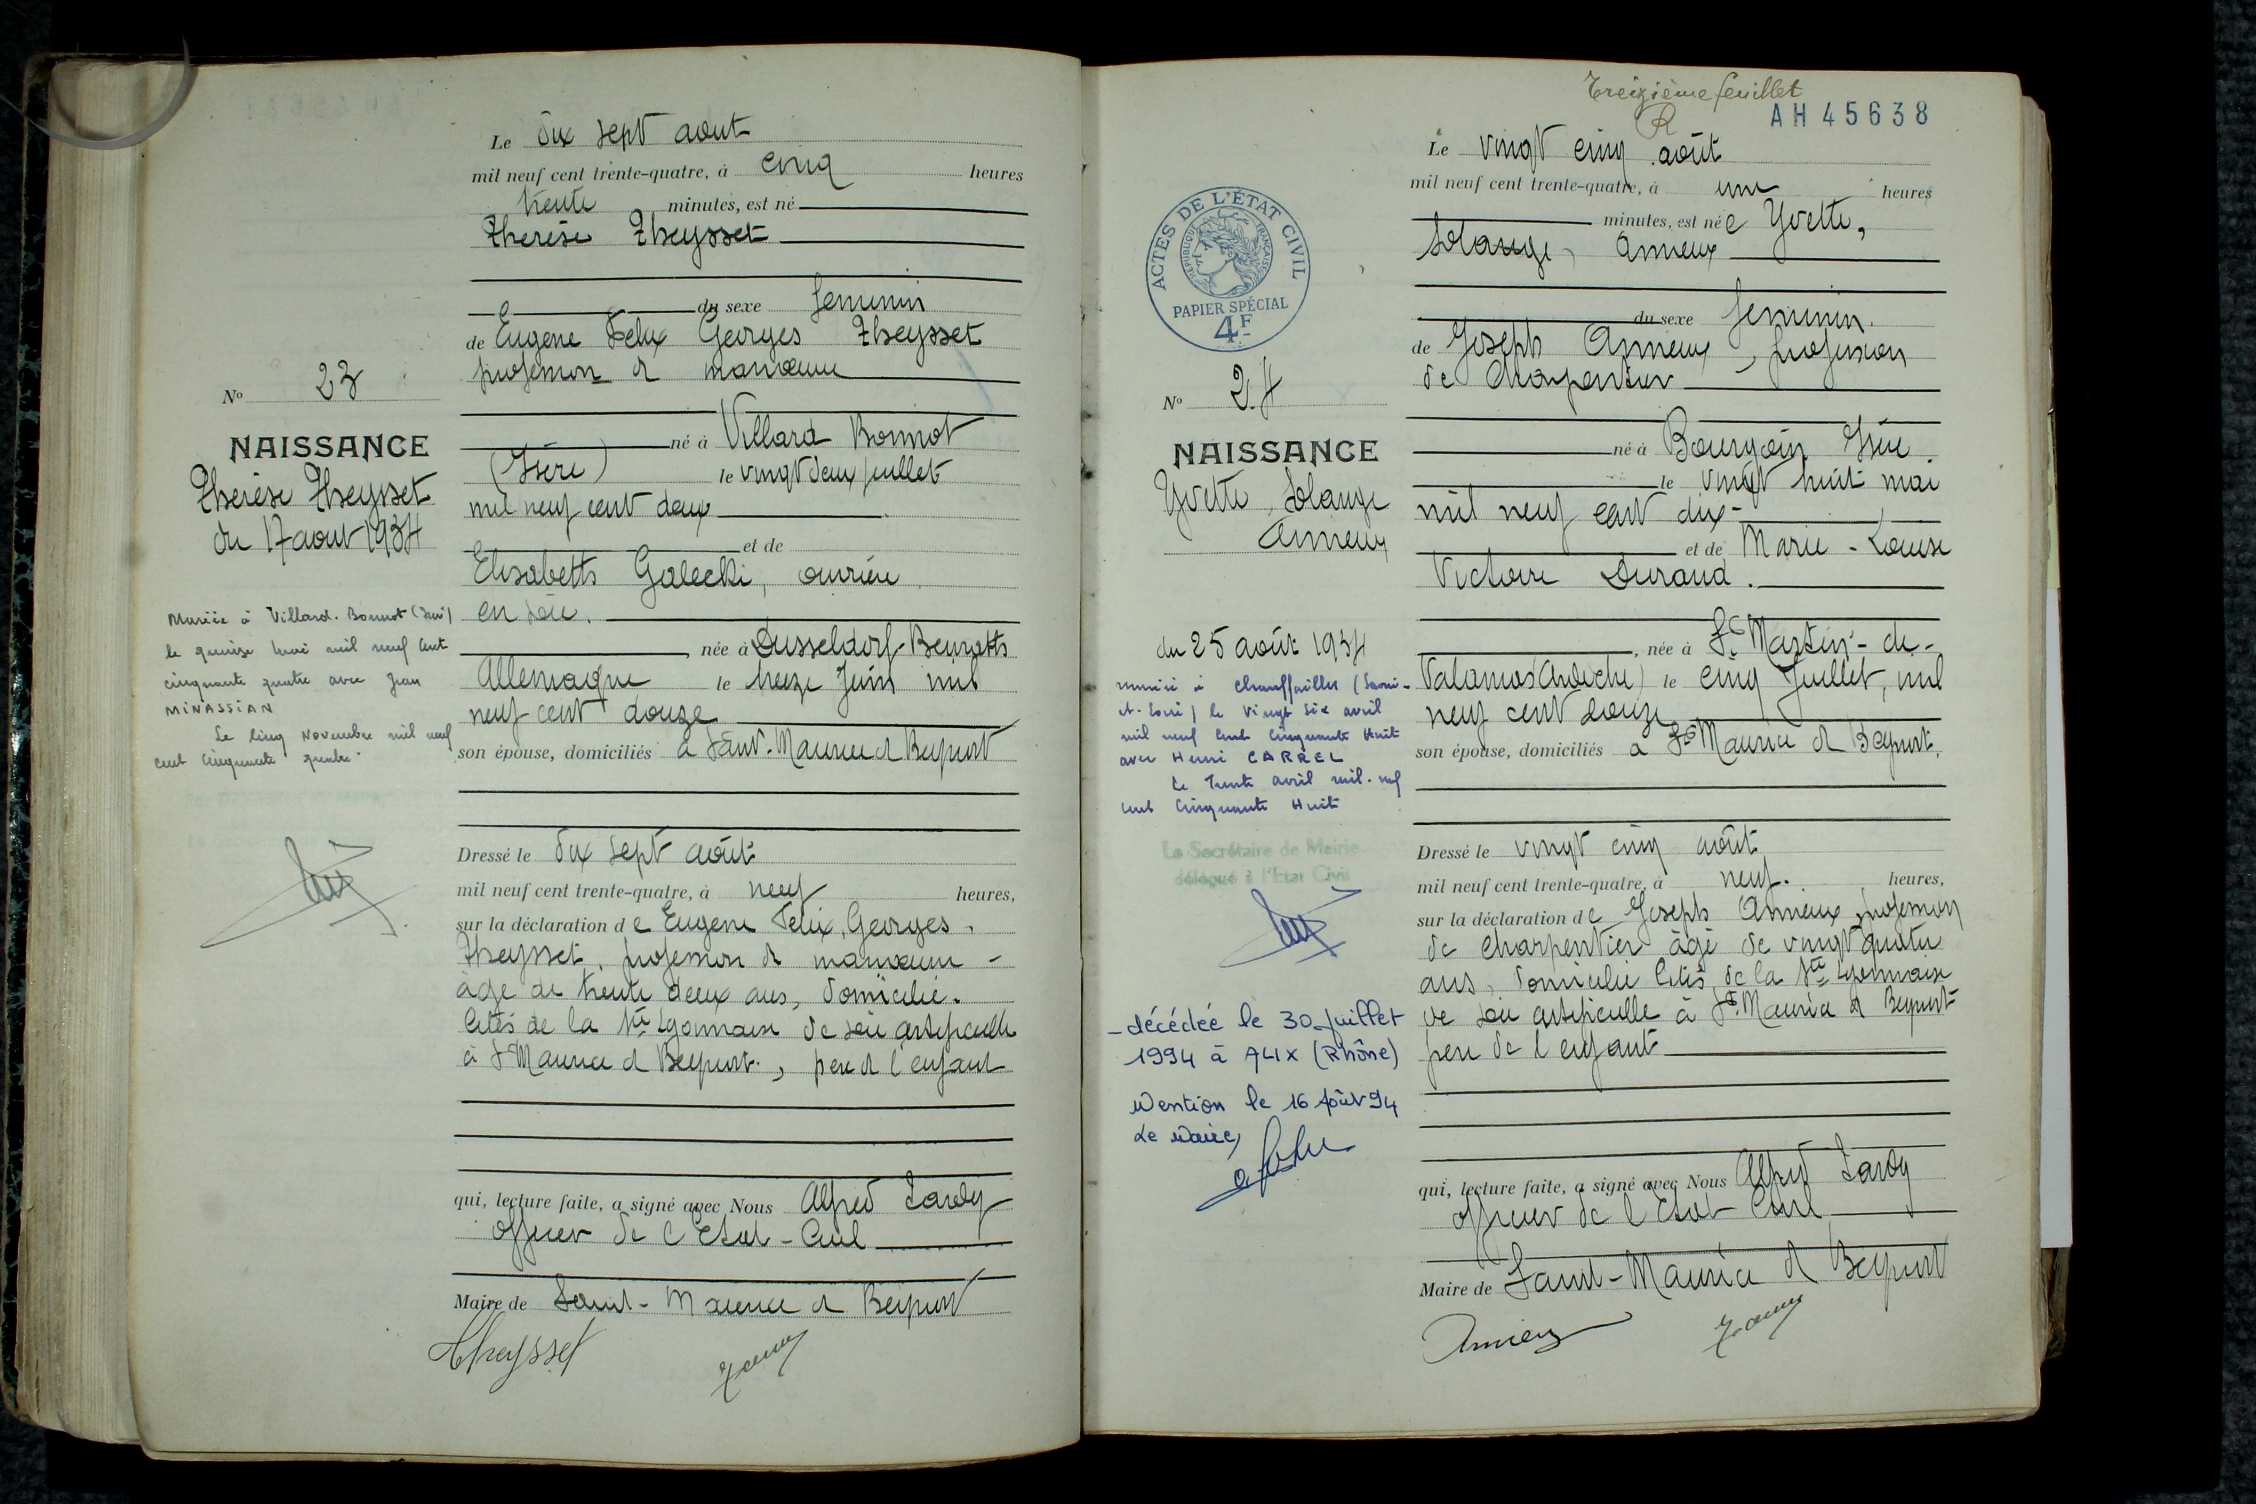 Le dix sept aout
mil neuf cent trente-quatre, à cinq heures
trente minutes, est né
Therèse Theysset
du sexe feminin
de Eugene Felix Georges Theysset
profession d manœuvre
né à Villard Bonnot
(Isère) le vingt deux juillet
mil neuf cent deux
et de
Elisabeth Galecki, ouvrière
en soie.
née à Dusseldorf-Benrath
Allemagne le treize Juin mil
neuf cent douze
son épouse, domiciliés à Saint-Maurice d Beynost
Dressé le dix sept août
mil neuf cent trente-quatre, à neuf heures,
sur la déclaration de Eugene Felix, Georges
Theysset, profession d manœuvre -
âge de trente deux ans, domicilié.
cités de la Sté Lyonnaise de soie artificielle
à St Maurice d Beynost, père d l'enfant
qui, lecture faite, a signé avec Nous Alfred Tardy
officier de l'Etat-Civil
Maire de Saint-Maurice d Beynost
Theysset
No 23
NAISSANCE
Therèse Theysset
du 17 aout 1934
Mariée à Villard-Bonnot (Isère)
le quinze mai mil neuf cent
cinquante quatre avec Jean
MINASSIAN
Le cinq Novembre mil neuf
cent cinquante quatre
Treizième feuillet
R
AH 45638
Le vingt cinq août
mil neuf cent trente-quatre, à une heures
minutes, est née Yvette,
Solange, Annieux
du sexe feminin.
de Joseph Annieux, profession
de Charpentier
né à Bourgoin Isère
le vingt huit mai
mil neuf cent dix-
et de Marie-Louise
Victoire Durand.
, née à St Martin-de-
Valamas (Ardèche) le cinq Juillet, mil
neuf cent douze
son épouse, domiciliés à St Maurice d Beynost,
Dressé le vingt cinq août
mil neuf cent trente-quatre, à neuf. heures,
sur la déclaration de Joseph Annieux, profession
de charpentier âgé de vingt quatre
ans, domicilié cités de la Sté Lyonnaise
de soie artificielle à St Maurice d Beynost
père de l'enfant
qui, lecture faite, a signé avec Nous Alfred Tardy
officier de l'Etat Civil
Maire de Saint-Maurice d Beynost
ACTES DE L'ÉTAT CIVIL
RÉPUBLIQUE FRANÇAISE
PAPIER SPÉCIAL
4F
No 24
NAISSANCE
Yvette, Solange
Annieux
du 25 août 1934
mariée à Chauffailles (Saône-
et-Loire) le vingt six avril
mil neuf cent cinquante Huit
avec Henri CARREL
Le trente avril mil-neuf
cent cinquante Huit
Le Secrétaire de Mairie
délégué à l'Etat Civil
- décédée le 30 juillet
1994 à ALIX (Rhône)
Mention le 16 Août 94
Le Maire,